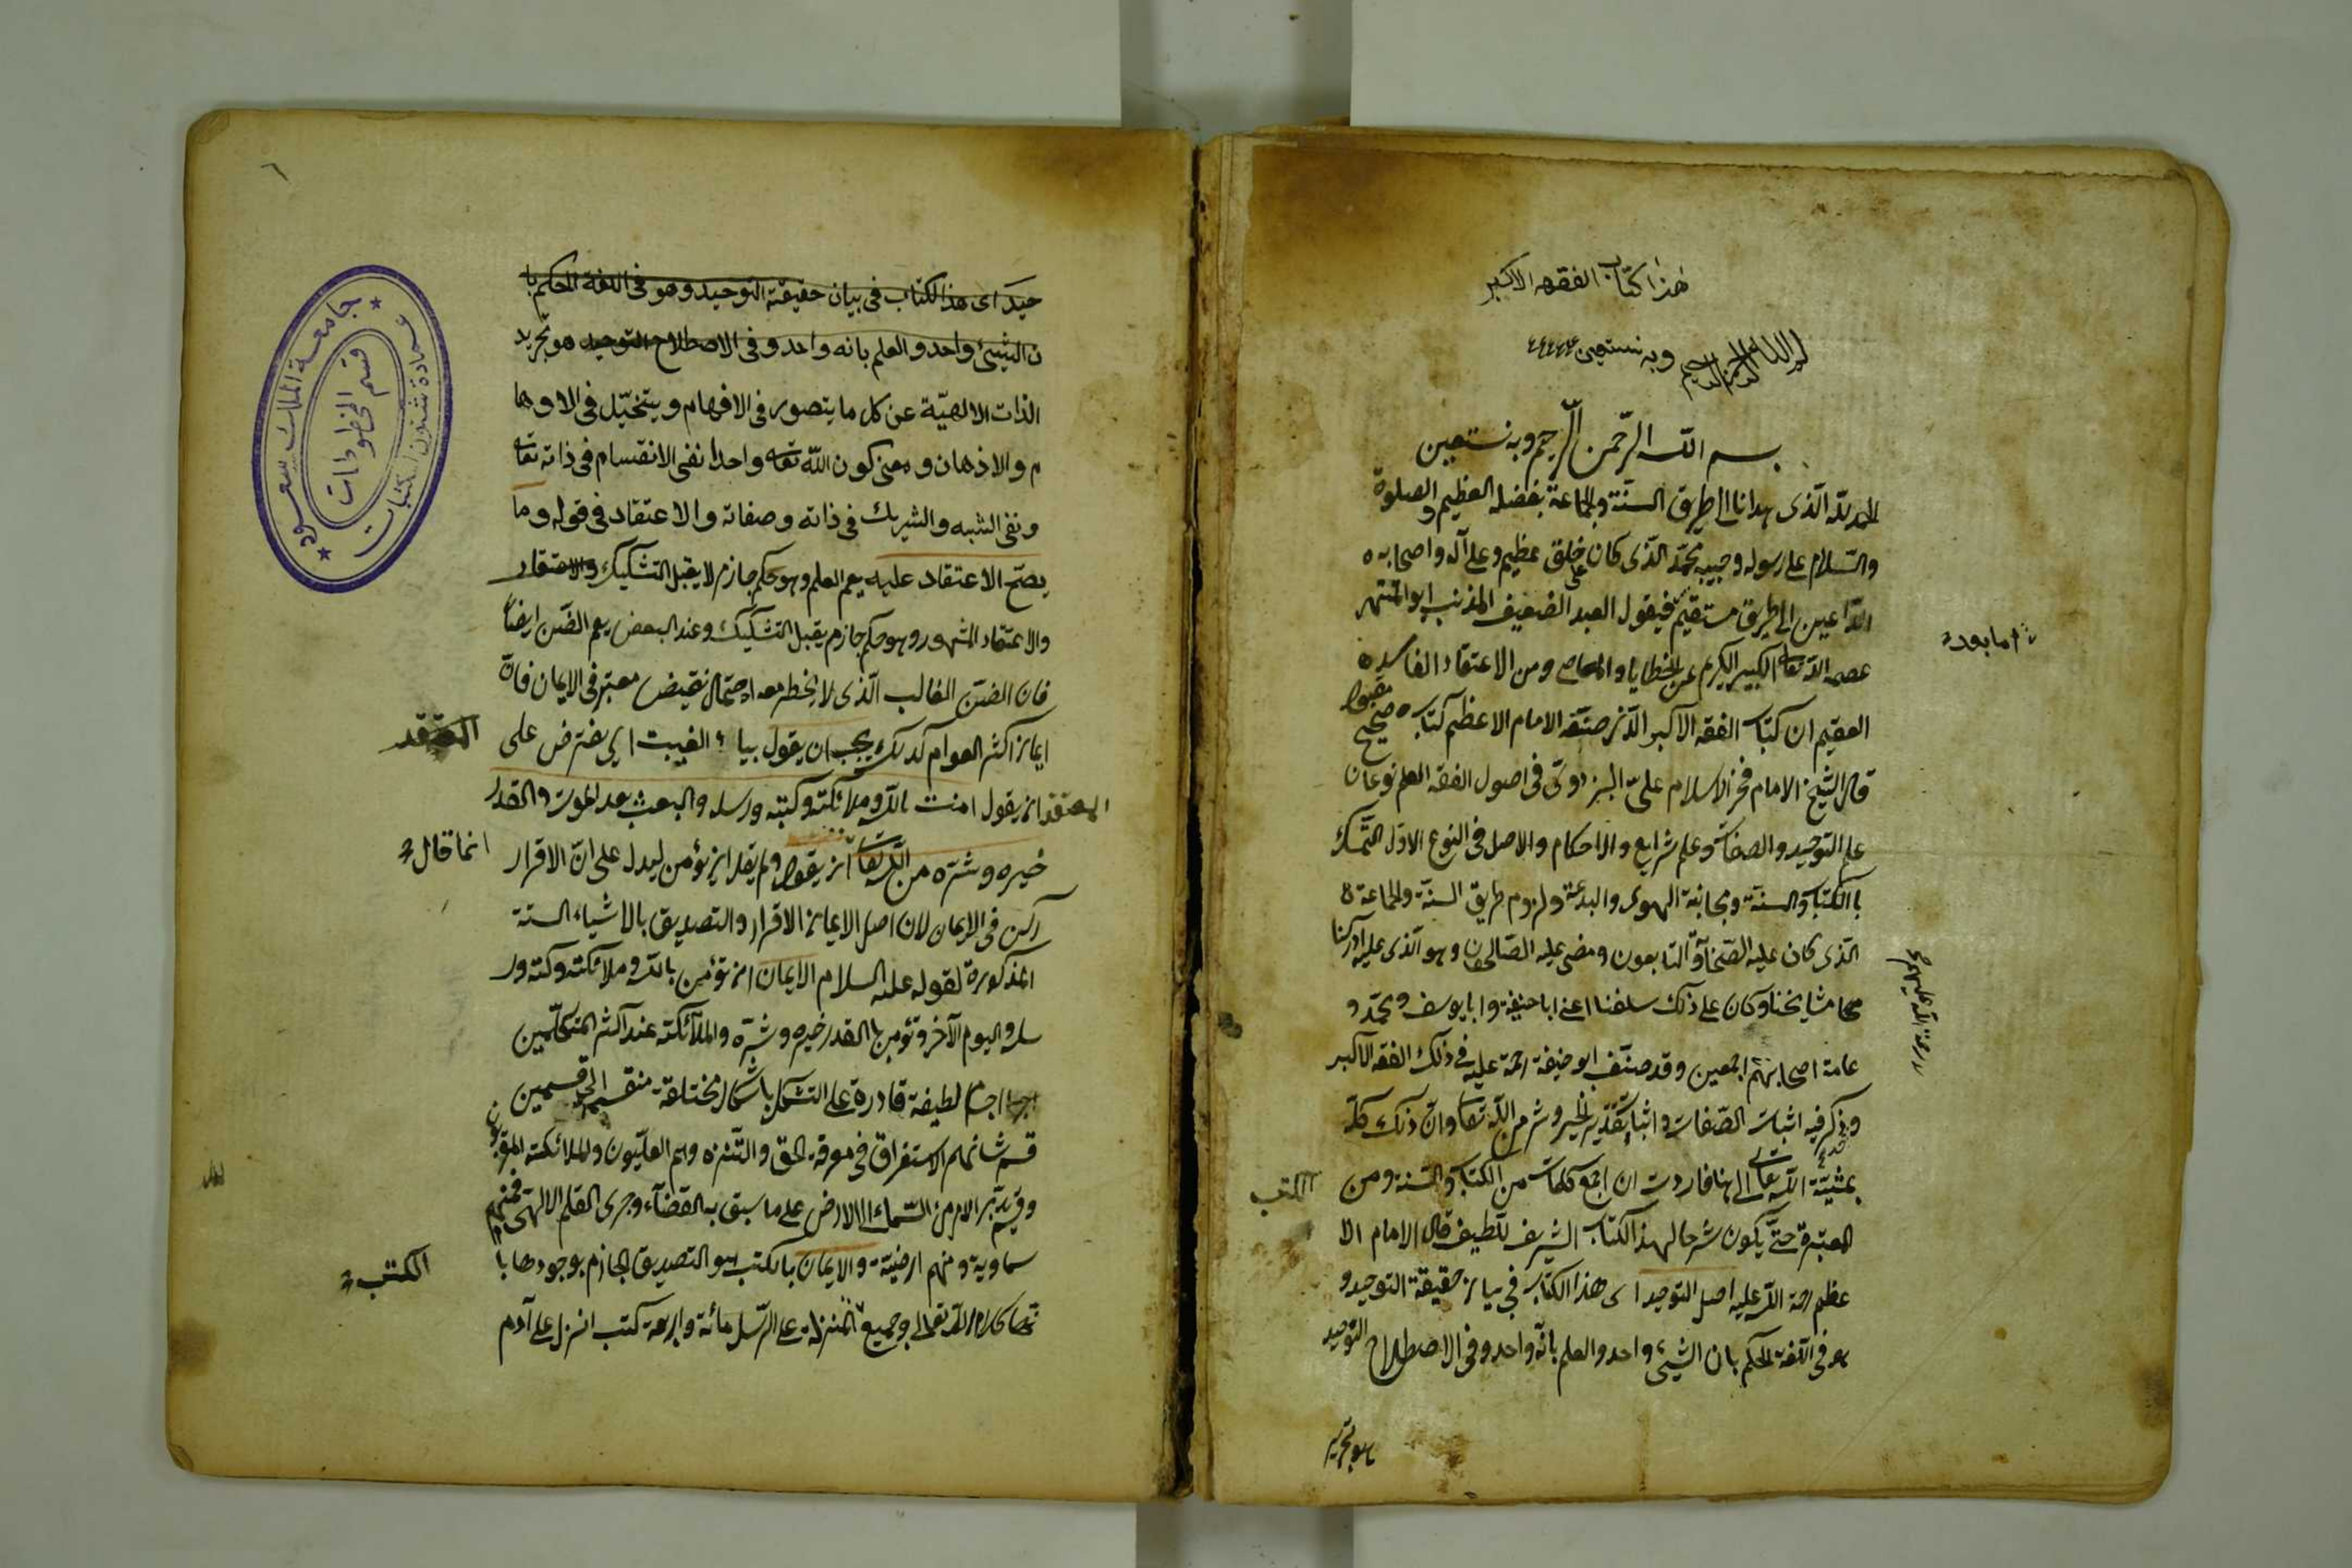 هذا كتاب الفقه الاكبر
بسم الله الرحمن الرحيم وبه نستعين
بسم الله الرحمن الرحيم وبه نستعين
الحمد لله الذى هدانا الى طريق السنة والجماعة بفضله العظيم والصلوة
والسلام على رسوله وحبيبه محمد الذى كان على خلق عظيم وعلى آله واصحابه
الداعين الى طريق مستقيم فيقول العبد الضعيف المذنب ابو المنتهى
اما بعد
عصمه الله تعالى الكبير الكريم عن الخطايا والمعاصى ومن الاعتقاد الفاسد
العقيم ان كتاب الفقه الاكبر الذى صنفه الامام الاعظم كتاب صحيح مقبول
قال الشيخ الامام فخر الاسلام على البزدوى فى اصول الفقه العلم نوعان
علم التوحيد والصفات وعلم شرايع والاحكام والاصل فى النوع الاول التمسك
بالكتاب والسنة ومجانبة الهوى والبدعة ولزوم طريق السنة والجماعة
الذى كان عليه الصحابة والتابعون ومضى عليه الصالحون وهو الذى عليه ادركنا
مشايخنا وكان على ذلك سلفنا اعنى ابا حنيفة وابا يوسف ومحمد و
عامة اصحابهم اجمعين وقد صنف ابو حنيفة رحمة عليه فى ذلك الفقه الاكبر
وذكر فيه اثبات الصفات واثبات تقدير الخير وشر من الله تعا وان ذلك كله
بمشية الله تعالى الهنا فاردت ان اجمع كلمات من الكتاب والسنة ومن
الكتب
المعتبرة حتى يكون شرحا لهذا الكتاب الشريف اللطيف قال الامام الا
عظم رحمة الله عليه اصل التوحيد اى هذا الكتاب فى بيان حقيقة التوحيد و
هو فى اللغة الحكم بان الشيئ واحد والعلم بانه واحد وفى الاصطلاح التوحيد
هو تجريد
٦
حيد اى هذا الكتاب فى بيان حقيقة التوحيد وهو فى اللغة الحكم با
ن الشيئ واحد والعلم بانه واحد وفى الاصطلاح التوحيد هو تجريد
الذات الالهية عن كل ما يتصور فى الافهام ويتخيل فى الاوها
م والاذهان ومعنى كون الله تعا واحدا نفى الانقسام فى ذاته تعا
ونفى الشبه والشريك فى ذاته وصفاته والاعتقاد فى قوله وما
يصح الاعتقاد عليه يعم العلم وهو حكم جازم لا يقبل التشكيك والاعتقاد
والاعتقاد المشهور وهو حكم جازم يقبل التشكيك وعند البعض يعم الظن ايضا
فان الظن الغالب الذى لا يخطر معه احتمال نقيض معتبر فى الايمان فان
ايمان اكثر العوام كذلك يجب ان يقول بياء الغيبت اى يفترض على
المعتقد ان يقول امنت بالله وملائكته وكتبه ورسله والبعث بعد الموت والقدر
خيره وشره من الله تعا ان يقول ولم يقل ان يؤمن ليدل على ان الاقرار
انما قال
ركن فى الايمان لان اصل الايمان الاقرار والتصديق بالاشياء الستة
المذكورة لقوله عليه السلام الايمان ان تؤمن بالله وملائكته وكتبه ور
سله واليوم الآخر وتؤمن بالقدر خيره وشره والملائكة عند اكثر المتكلمين
اجسام لطيفة قادرة على التشكل باشكال مختلفة منقسم الى قسمين
قسم شانهم الاستغراق فى معرفة الحق والتنزه وهم العليون والملائكة المقربون
وقسم يدبر الامر من السماء الى الارض على ما سبق به القضاء وجرى القلم الالهى فمنهم
سماوية ومنهم ارضية والايمان بالكتب هو التصديق الجازم بوجودها با
الكتب
نها كلام الله تعالى وجميع المنزلة على الرسل مائة واربعة كتب انزل على آدم
جامعة الملك سعود
عمادة شئون المكتبات
قسم المخطوطات